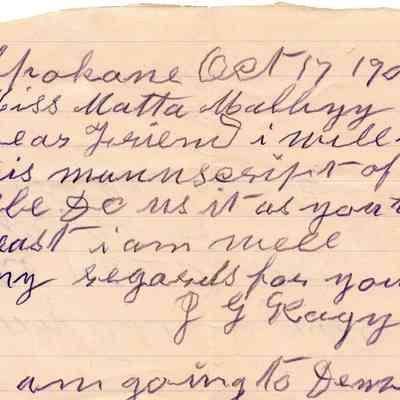 Spokane Oct 17 190
Miss Matta Mallryy
Dear Friend i will
his mannscript of
the DC us it as your
east i am well
my regards for you
J G Kagy
am going to Denv